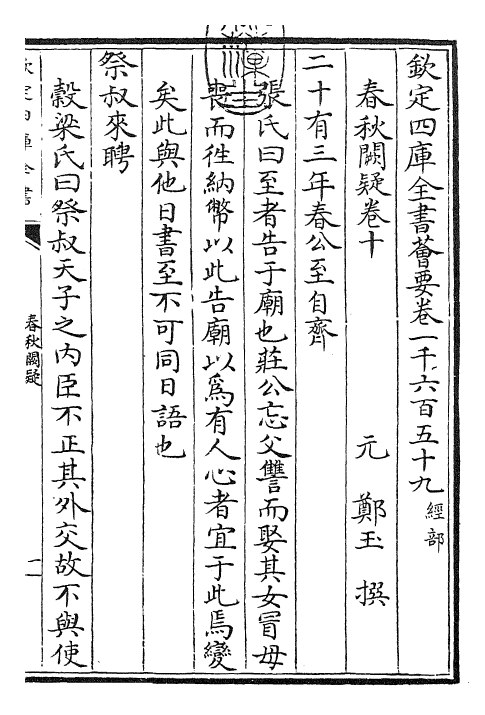 欽定四庫全書薈要卷一千六百五十九 經部
春秋闕疑卷十 元 鄭玉 撰
二十有三年春公至自齊
張氏曰至者告于廟也莊公忘父讐而娶其女冒母
喪而徃納幣以此告廟以為有人心者宜于此焉變
矣此與他日書至不可同日語也
祭叔來聘
穀梁氏曰祭叔天子之内臣不正其外交故不與使
春秋闕疑